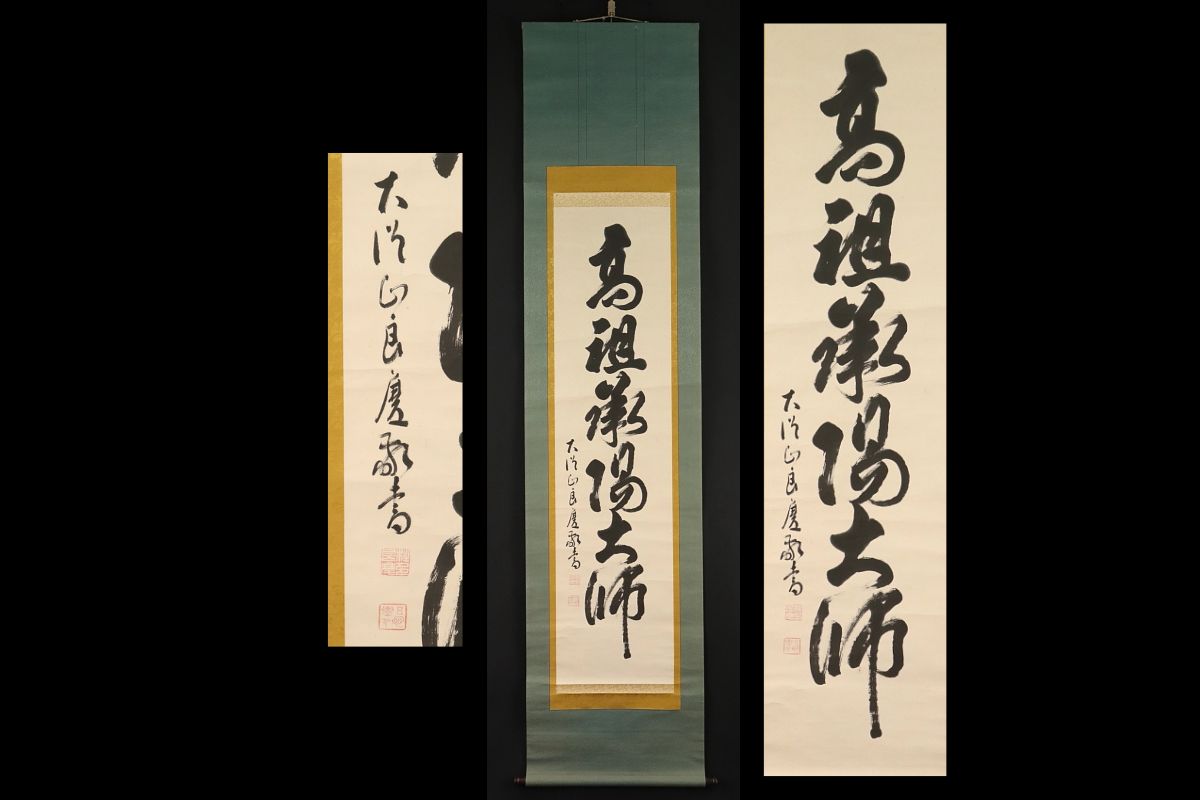 大山良慶敬書
高祖承陽大師
大山良慶敬書
高祖承陽大師
大山良慶敬書